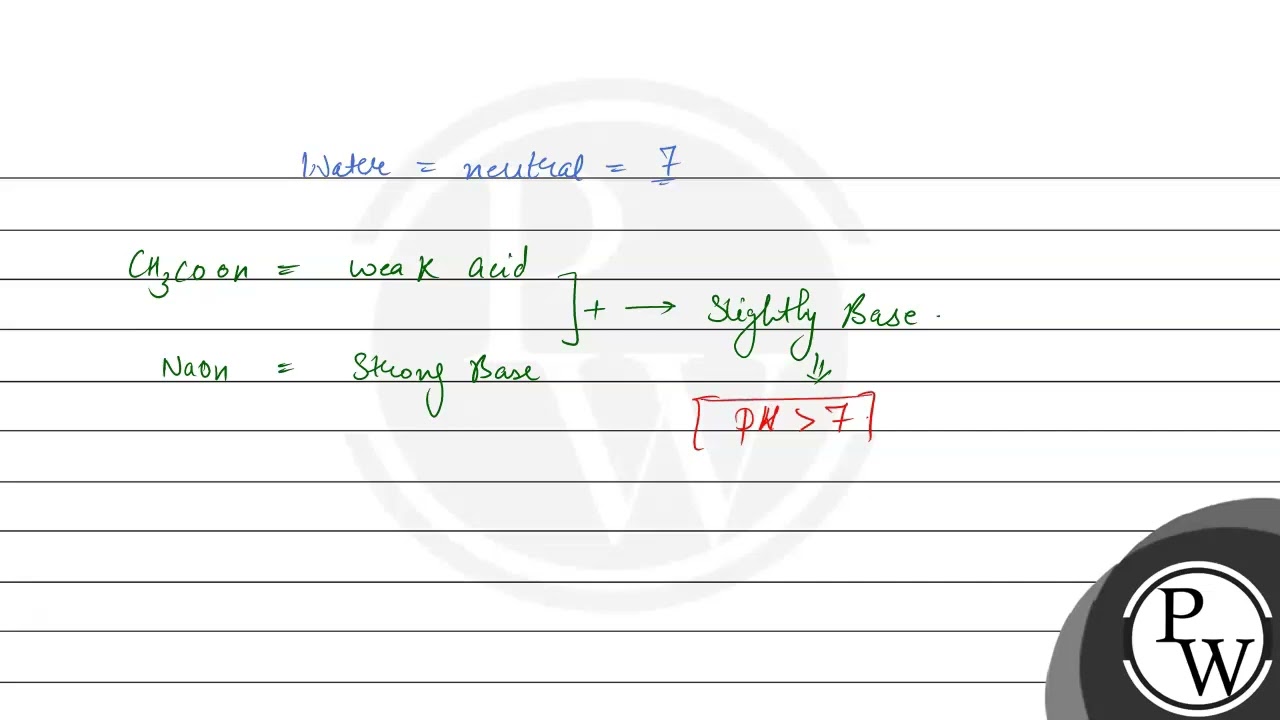 Water = neutral = 7
CH3COOH = weak acid
] + → Slightly Base.
NaOH = Strong Base
pH > 7
PW
PW